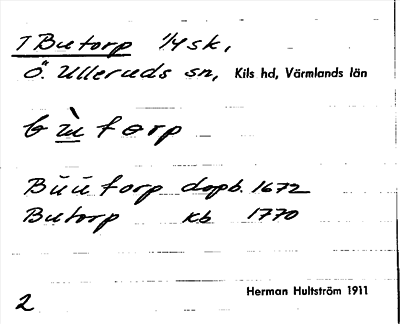 1 Butorp 1/4 sk,
Ö. Ulleruds sn, Kils hd, Värmlands län
bu̠̇̀torp
Bŭŭtorp dopb. 1672
Butorp kb 1770
2 Herman Hultström 1911